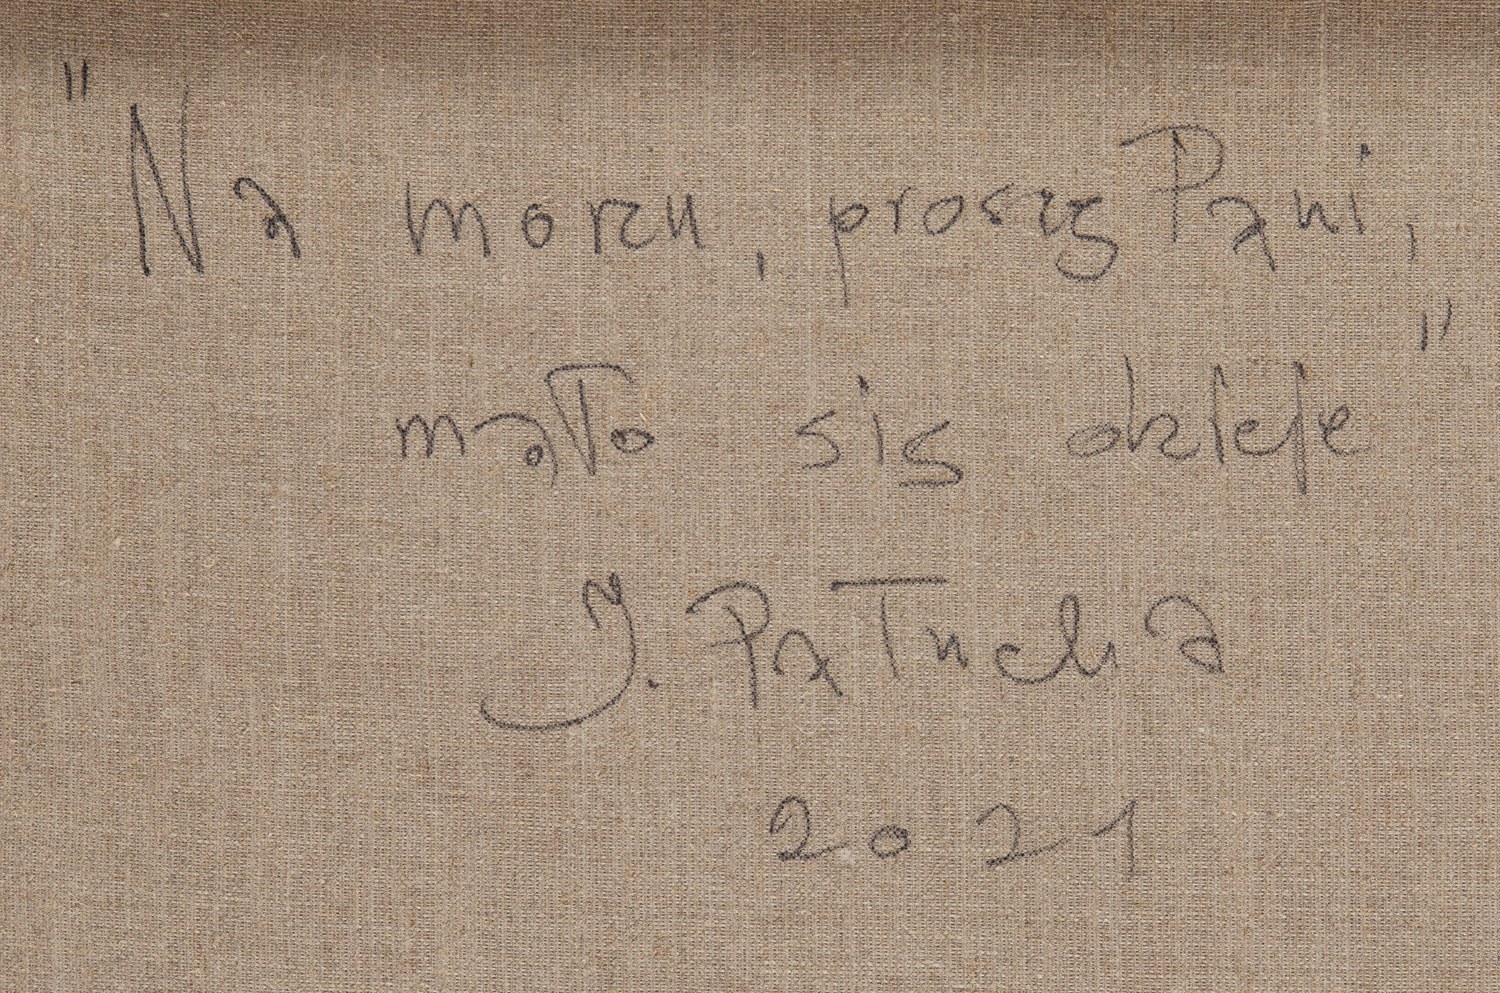 "Na morzu, proszę Pani,
mało się dzieje"
J. Patucha
2021